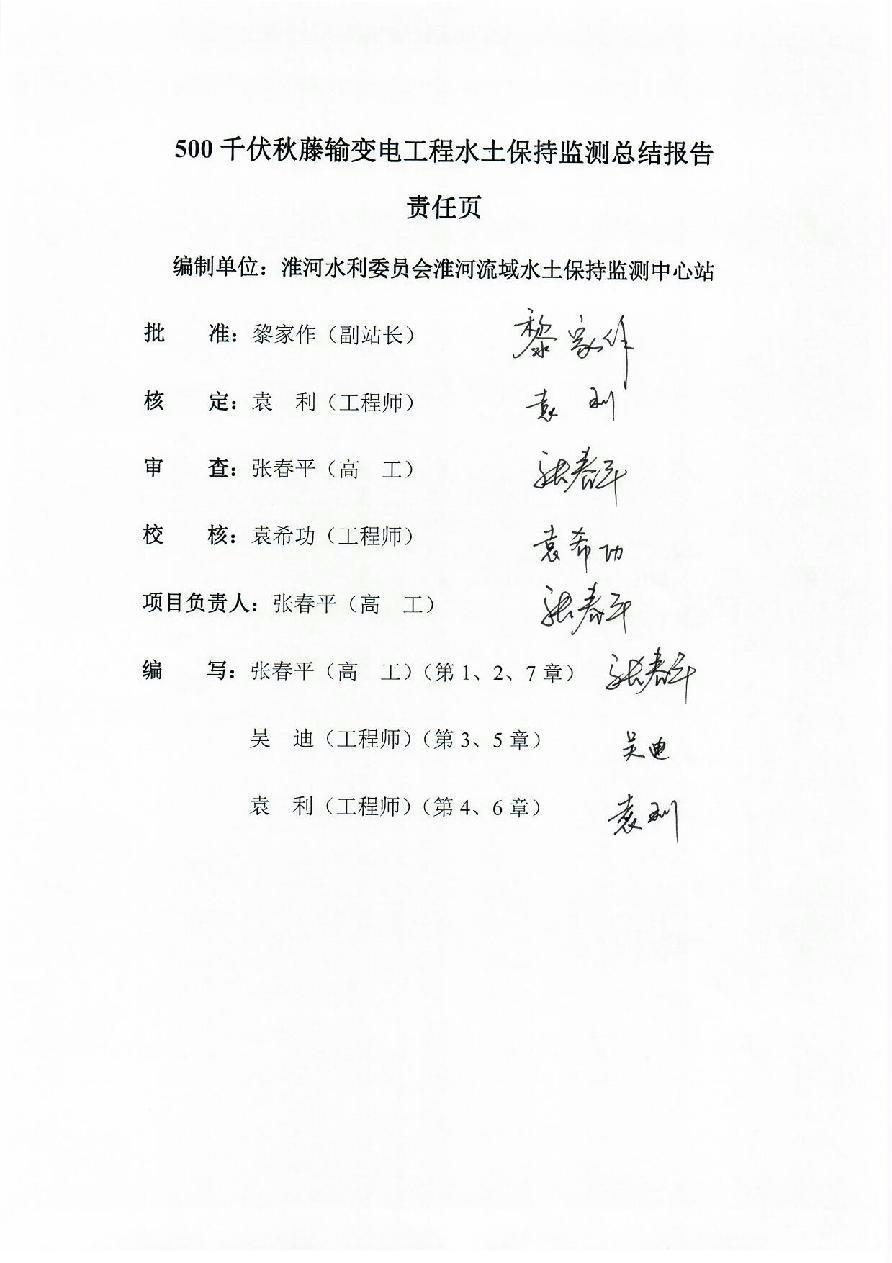 500 千伏秋藤输变电工程水土保持监测总结报告
责任页
编制单位：淮河水利委员会淮河流域水土保持监测中心站
批　　准：黎家作（副站长） 黎家作
核　　定：袁　利（工程师） 袁利
审　　查：张春平（高　工） 张春平
校　　核：袁希功（工程师） 袁希功
项目负责人：张春平（高　工） 张春平
编　　写：张春平（高　工）（第 1、2、7 章） 张春平
吴　迪（工程师）（第 3、5 章） 吴迪
袁　利（工程师）（第 4、6 章） 袁利